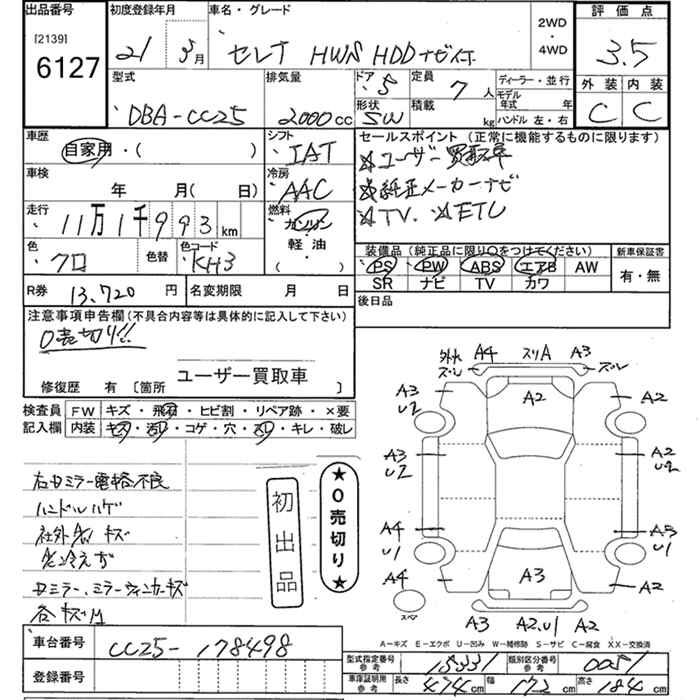 出品番号
[2139]
6127
初度登録年月
21年 5月
車名・グレード
セレナ HWS HDDナビ
2WD
・
4WD
評価点
3.5
外装 内装
C C
型式
DBA-CC25
排気量
2000cc
ドア 5
形状 SW
定員 7人
積載 kg
ディーラー・並行
モデル年式 年
ハンドル 左・右
車歴
自家用・( )
車検
年 月( 日)
走行
11万1千993km
色
クロ
色替
色コード
KH3
シフト
IAT
冷房
AAC
燃料
ガソリン
軽油
( )
セールスポイント(正常に機能するものに限ります)
☆ユーザー買取車
☆純正メーカーナビ
☆TV. ☆ETC
装備品(純正品に限り○をつけてください)
PS PW ABS エアB AW
SR ナビ TV カワ
新車保証書
有・無
R券 13,720円
名変期限 月 日
後日品
注意事項申告欄(不具合内容等は具体的に記入して下さい)
0売切り!!
ユーザー買取車
修復歴 有 〔箇所 〕
検査員記入欄
FW キズ・飛石・ヒビ割・リペア跡・×要
内装 キズ・汚レ・コゲ・穴・スレ・キレ・破レ
右ドミラー電格不良
ハンドルハゲ
ドミラー、ミラーウィンカーキズ
初出品
★0売切り★
A4 スリA A3
A3 U2 A2 A2
A3 U2 A2 U2
A4 U1 A3 U1
A4 A3 A2
スペア
A3 A2.U1 A2
A=キズ E=エクボ U=凹み W=補修跡 S=サビ C=腐食 XX=交換済
車台番号 CC25-178498
登録番号
型式指定番号 参考 15331
類別区分番号 参考 0051
車庫証明用 参考 長さ 474cm 幅 172cm 高さ 184cm